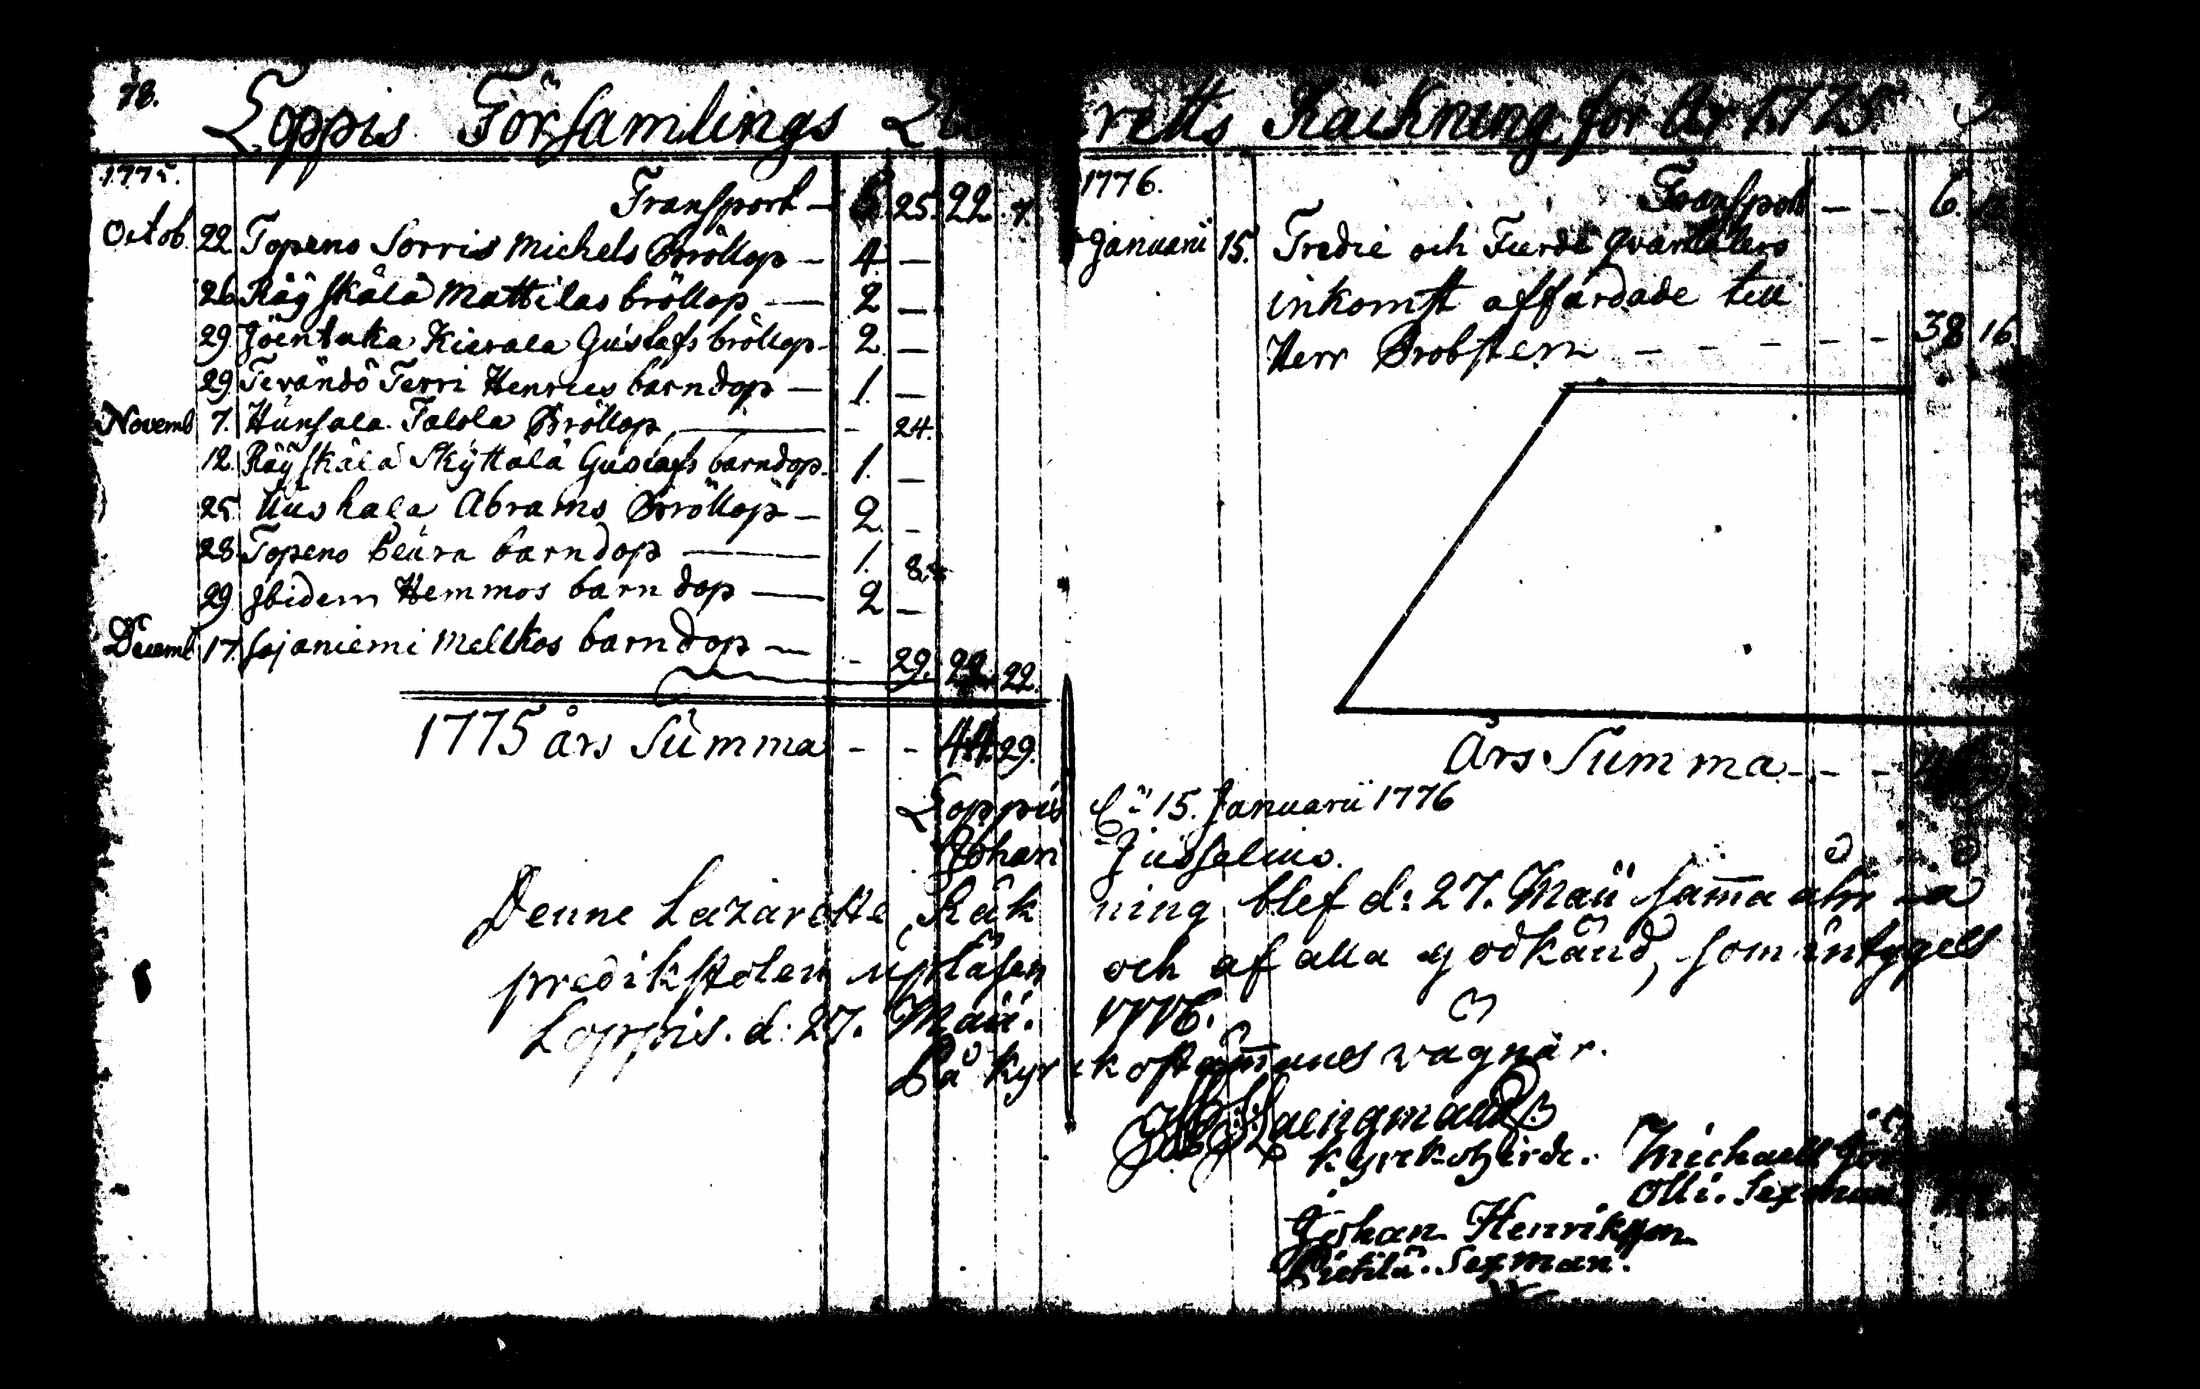 78.
Loppis Församlings La retts Räckning för År 1775.
1775.
Transport — 6. 25. 22. 7.
Octob. 22 Topeno Sorris Michels Bröllop — 4. —
26 Räyskälä Mattilas bröllop — 2 —
29 Joentaka Kierala Gustafs bröllop. 2 —
29 Tevändö Terri Henrics barndop — 1. —
Novemb 7. Hunsala Talola Bröllop — - 24.
12. Räyskälä Skyttälä Gustafs barndop. 1. —
25 Uuskala Abrams Bröllop — 2. -
28 Topeno Peura barndop — 1. 8.
29 Ibidem Hemmos barndop — 2 —
Decemb 17. Sajaniemi Mellkos barndop — - 29. 22. 22.
1775 års Summa - - 44. 29.
1776.
Transport — - 6.
Januarii 15. Tredie och Fierde Qvartalers
inkomst affärdade till
Herr Probsten - - - - - - 38 16
Års Summa - - -
Loppis d. 15. Januarii 1776
Johan Gusselius.
Denne Lazaretts Räkning blef d: 27. Maii samma åhr
predikstolen upläsen och af alla godkänd, som intygels
Loppis. d. 27. Maii. 1776.
På kyrckostämmanes vägnar.
kyrckoherde. Michaell
Olli. Sexman
Johan Henriksson
Pietilä. Sexman.